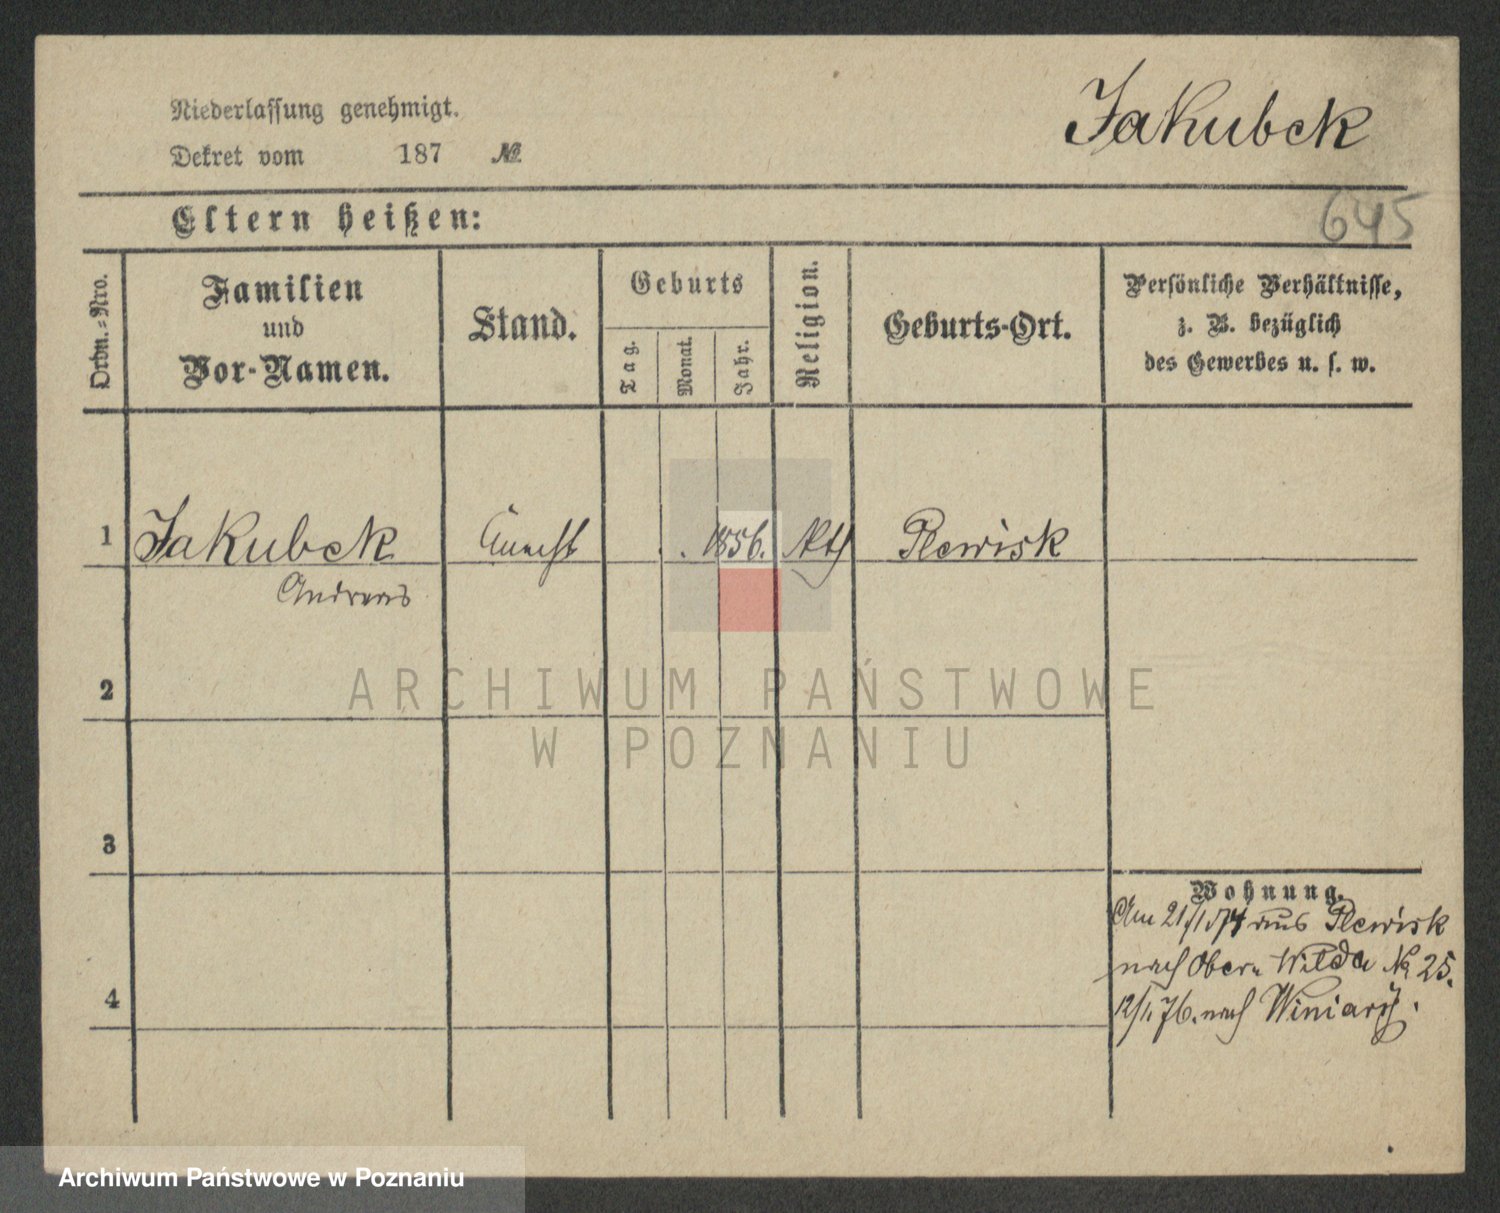 Niederlassung genehmigt.
Dekret vom 187 №
Jakubek
645
Eltern heißen:
Ordn.-Nro.
Familien
und
Vor-Namen.
Stand.
Geburts
Tag.
Monat.
Jahr.
Religion.
Geburts-Ort.
Persönliche Verhältnisse,
z. B. bezüglich
des Gewerbes u. s. w.
1 Jakubek Knecht . . 1856. Kth Plewisk
Andreas
2
ARCHIWUM PAŃSTWOWE
W POZNANIU
3
Wohnung.
Am 21/1 74 aus Plewisk
nach Ober Wilda № 25.
4
12/1 76. nach Winiary.
Archiwum Państwowe w Poznaniu